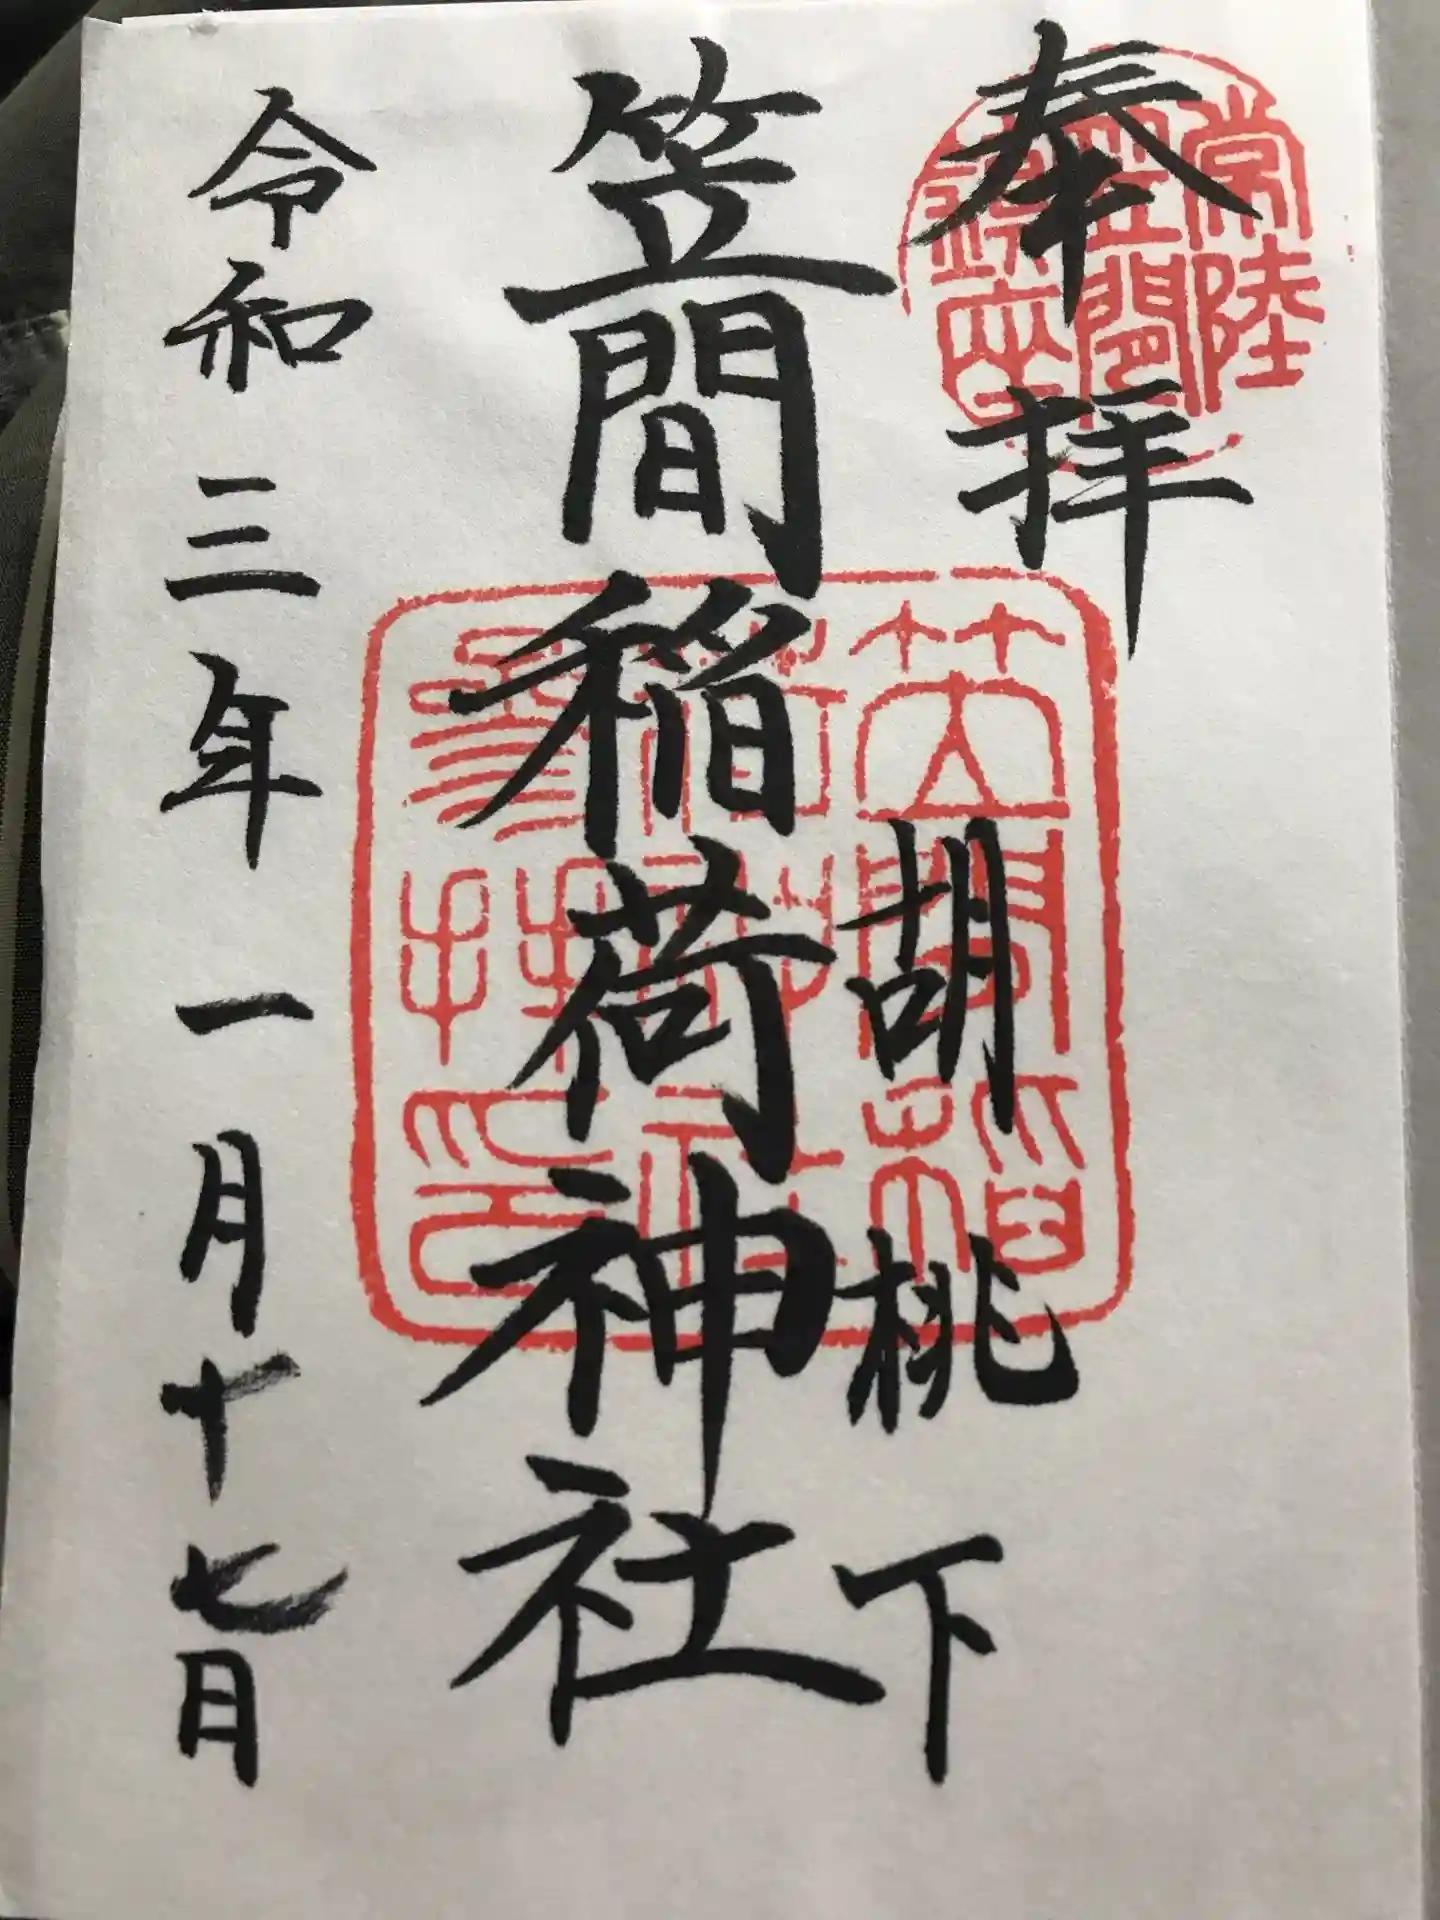 奉拝
常陸
笠間
鎮座
胡桃下
笠間稲荷神社
笠間稲荷
神社
参拝
印
令和三年一月十七日